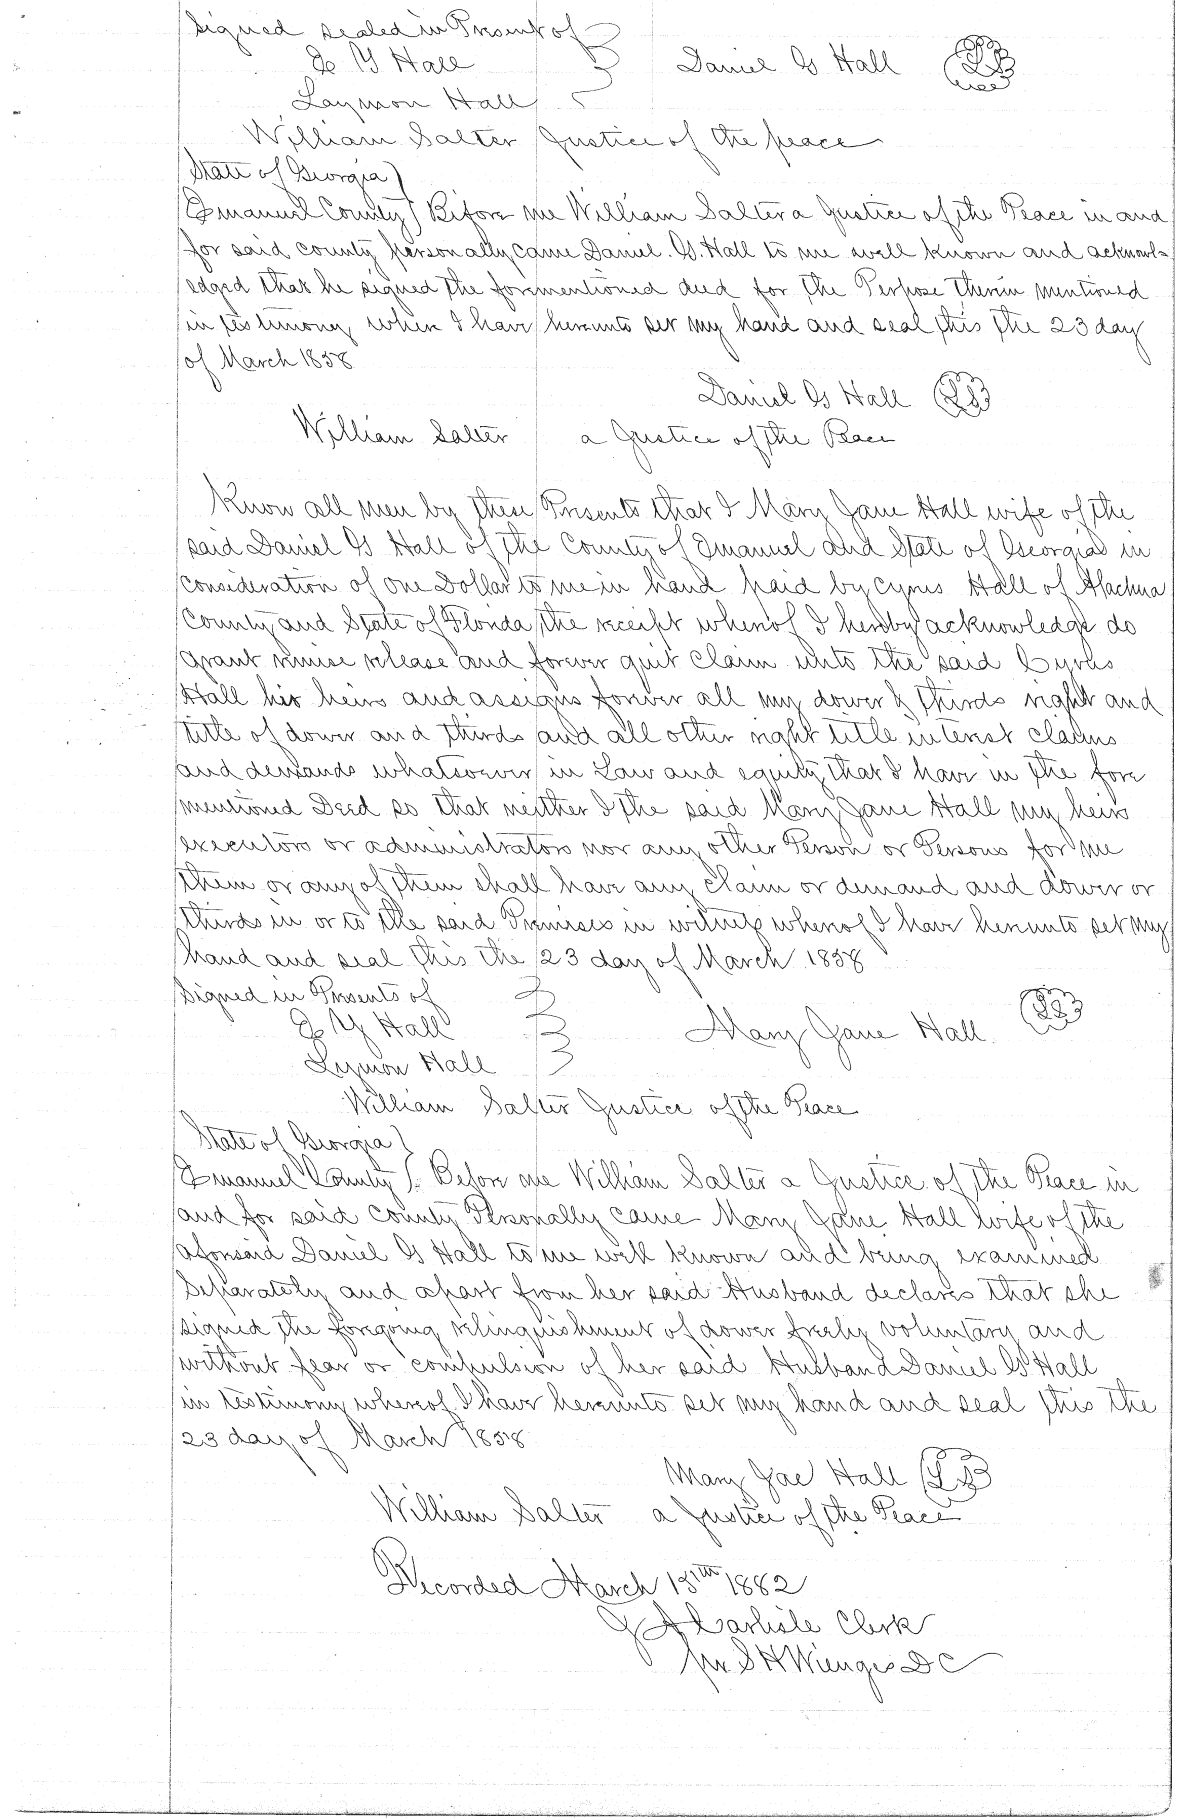 Signed sealed in Present of
& Y Hall Daniel G Hall LS
Laymon Hall
William Salter Justice of the peace
State of Georgia
Emanuel County Before me William Salter a Justice of the Peace in and
for said county personally came Daniel. G. Hall to me well known and acknowl-
edged that he signed the forementioned deed for the Perpose therin mentioned
in testimony when I have herunto set my hand and seal this the 23 day
of March 1858
Daniel G Hall LS
William Salter a Justice of the Peace
Know all men by these Presents that I Mary Jane Hall wife of the
said Daniel G Hall of the County of Emanuel and State of Georgia in
consideration of One Dollar to me in hand paid by Cyrus Hall of Alachua
County and State of Florida the receipt wherof I hereby acknowledge do
grant remise release and forever quit claim unto the said Cyrus
Hall his heirs and assigns forever all my dower & thirds right and
title of dower and thirds and all other right title interest claims
and demands whatsoever in Law and equity that I have in the fore
mentioned Deed so that neither I the said Mary Jane Hall my heirs
executors or administrators nor any other Person or Persons for me
them or any of them shall have any claim or demand and dower or
thirds in or to the said Premises in witness wherof I have herunto set my
hand and seal this the 23 day of March 1858
Signed in Presents of
& Y Hall Mary Jane Hall LS
Lymon Hall
William Salter Justice of the Peace
State of Georgia
Emanuel County Before me William Salter a Justice of the Peace in
and for said County Personally came Mary Jane Hall wife of the
aforsaid Daniel G Hall to me well known and being examined
Separately and apart from her said Husband declares that she
signed the forgoing relinquishment of dower freely voluntary and
without fear or compulsion of her said Husband Daniel G Hall
in testimony wherof I have herunto set my hand and seal this the
23 day of March 1858
Mary Jae Hall LS
William Salter a Justice of the Peace
Recorded March 15th 1882
J A Carlisle Clerk
per S H Wienges DC